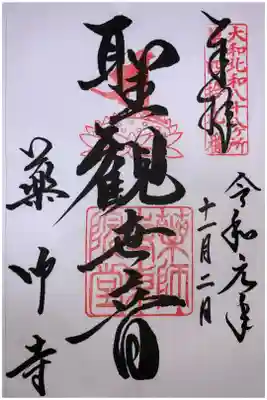 奉拝
大和北部八十八ヶ所
令和元年
十一月二日
聖観世音
薬师寺